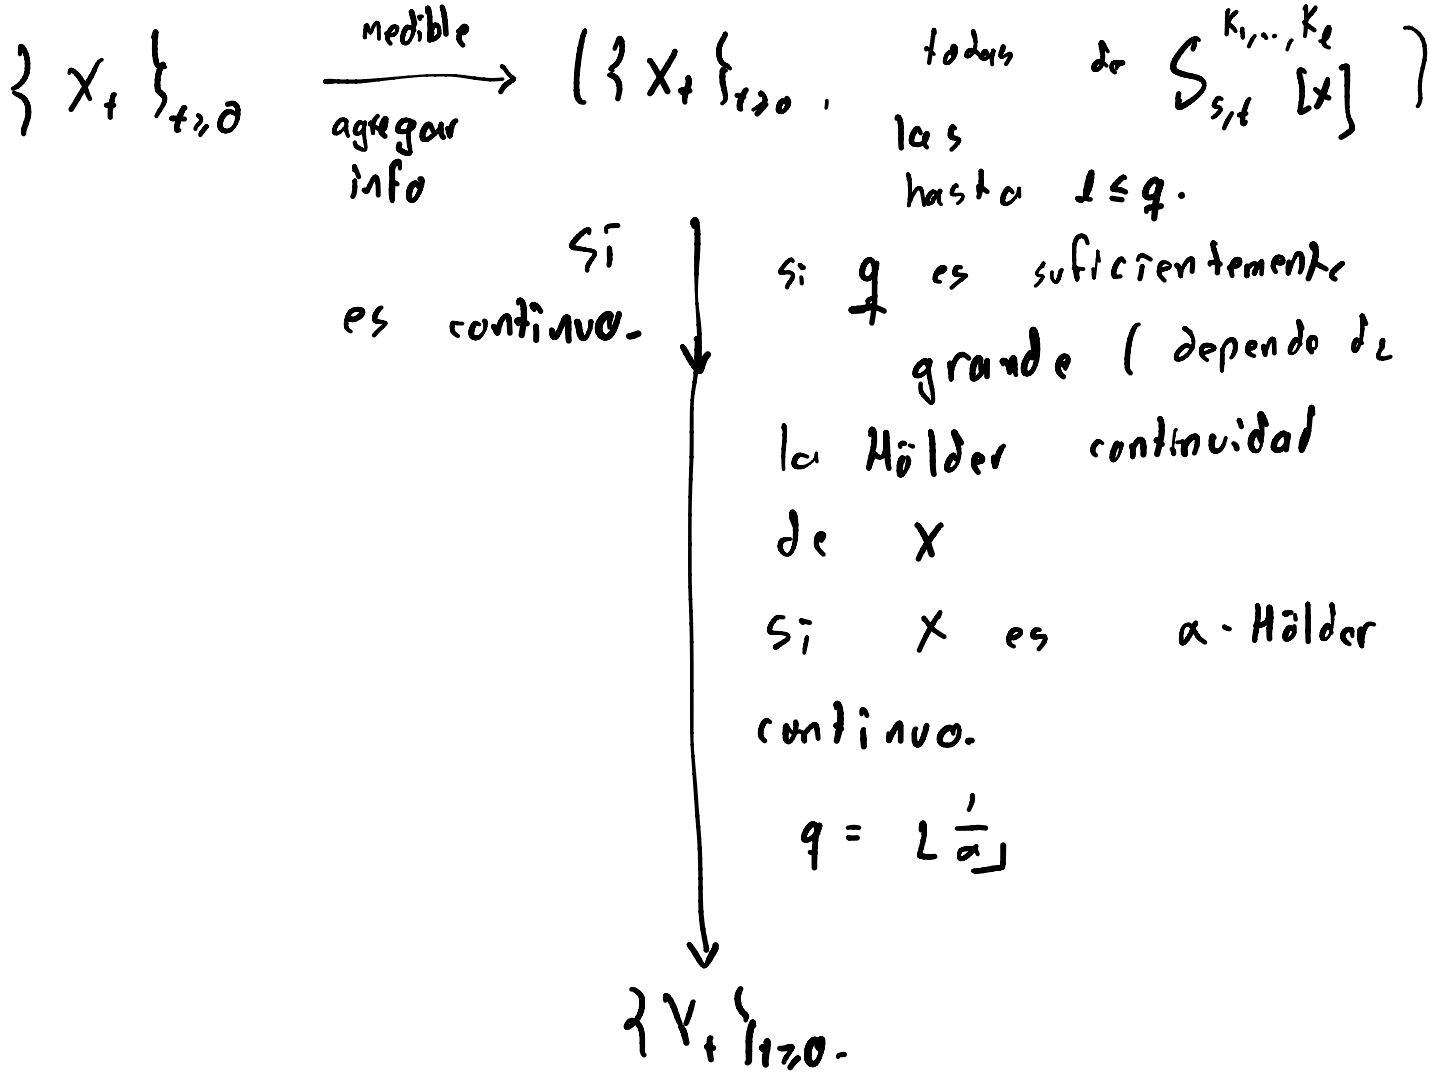 {X_t}_{t≥0} medible ⟶ agregar info ({X_t}_{t≥0}, todas las de S_{s,t}^{k_1,...,k_l}[X])
hasta l ≤ q.
si es continuo.
si q es suficientemente
grande (depende de
la Hölder continuidad
de X
si X es α-Hölder
continuo.
q = ⌊1/α⌋
{Y_t}_{t≥0}.